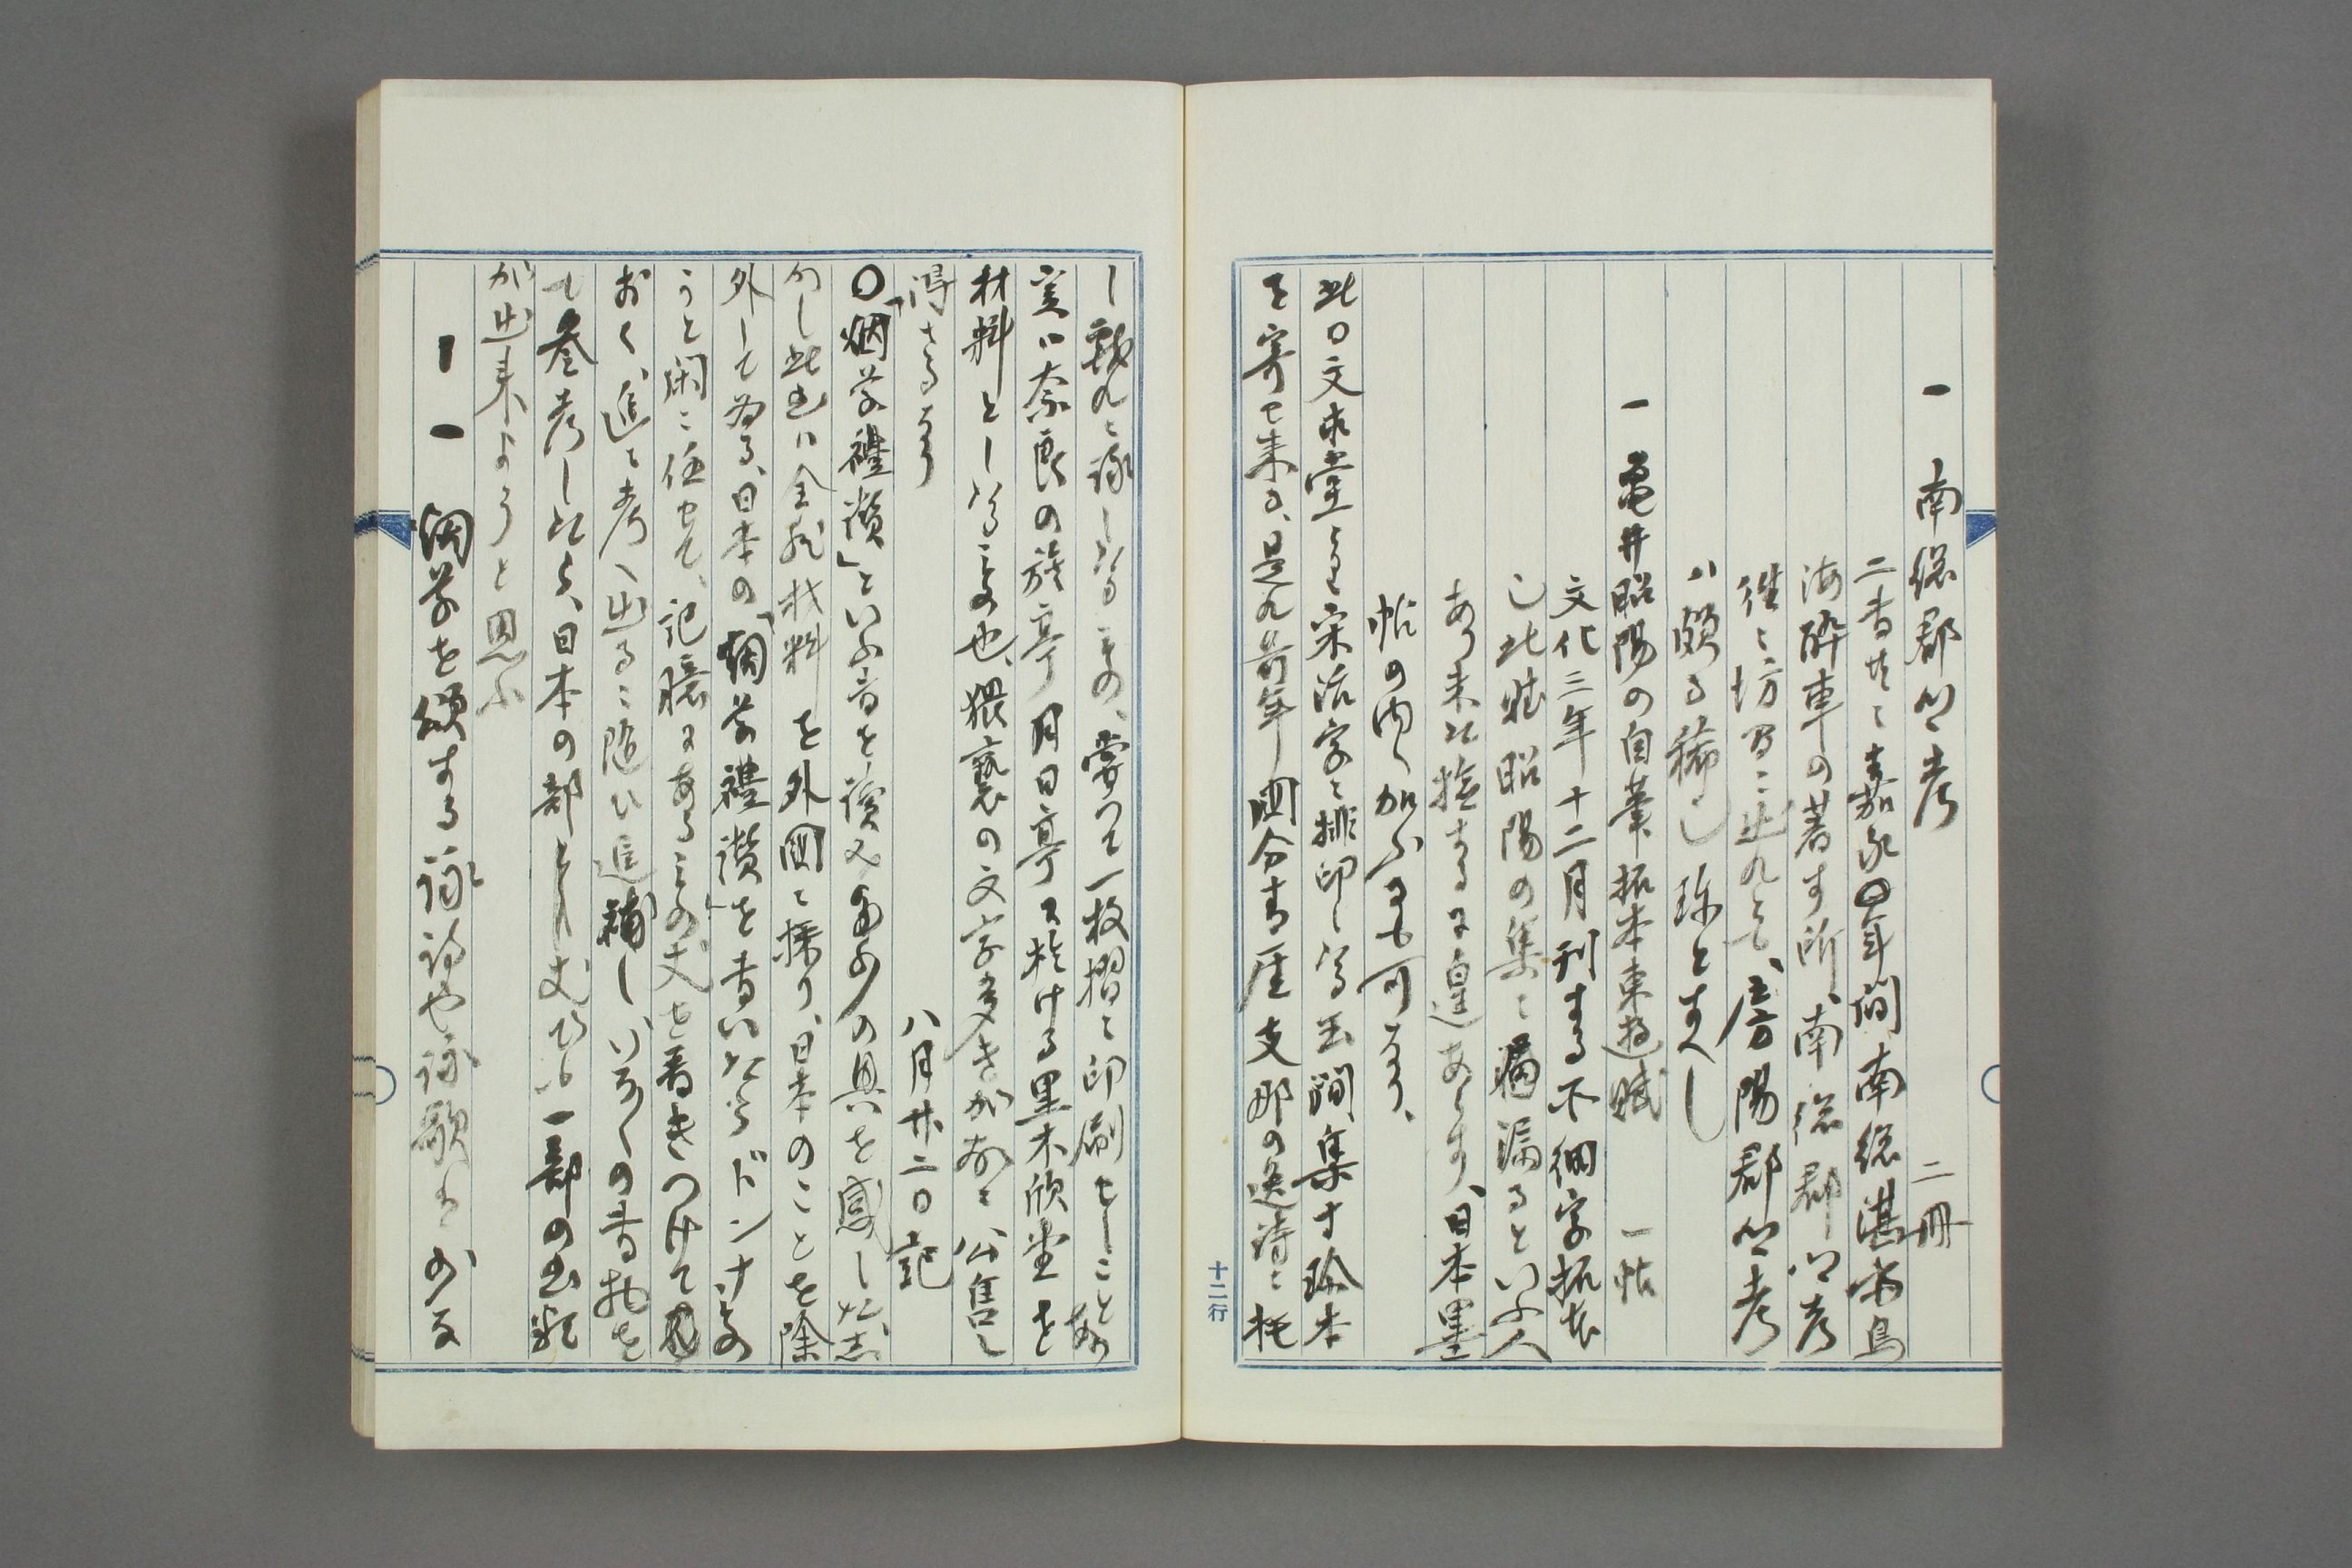 一 南総郡郷考 二冊
二書共に嘉永年間南総湛斎鳥
海酔車の著す所、南総郡郷考
往々坊間に出れとも、房陽郡郷考
ハ頗る稀也 珍とすへし
一 亀井昭陽の自筆拓本東遊賦 一帖
文化三年十二月刊する不細字拓本
也此賦昭陽の集に漏るといふ人
あり未た検するに遑あらす、日本墨
帖の内へ加ふるも可なり、
此日文求堂より宋活字に排印しなる玉澗集寸珍本
を寄せ来る、是れ昔年国分青厓支那の逸詩に托
し戯れに詠しなるもの、嘗つて一枚摺に印刷せしことあり
実ハ奈良の旗亭月日亭に於ける黒木欣堂を
材料としなるもの也、猥褻の文字多きが故に公售し
得さるなり
八月廿二日記
〇「烟草礼讃」といふ書を読み多少の興を感したが、
かし此書ハ全然材料を外国に採り、日本のことを除
外して居る、日本の「烟草礼讃」を書いたらドンナもの
かと閑に任せて、記臆にあるもの丈を書きつけて見
おく、追て考へ出るに随ひ追補しいろ〱の書物を
も参考したら、日本の部とし丈でも一部の書冊
が出来ようと思ふ
一 烟草を頌する詠詩や詠歌も少な
十二行